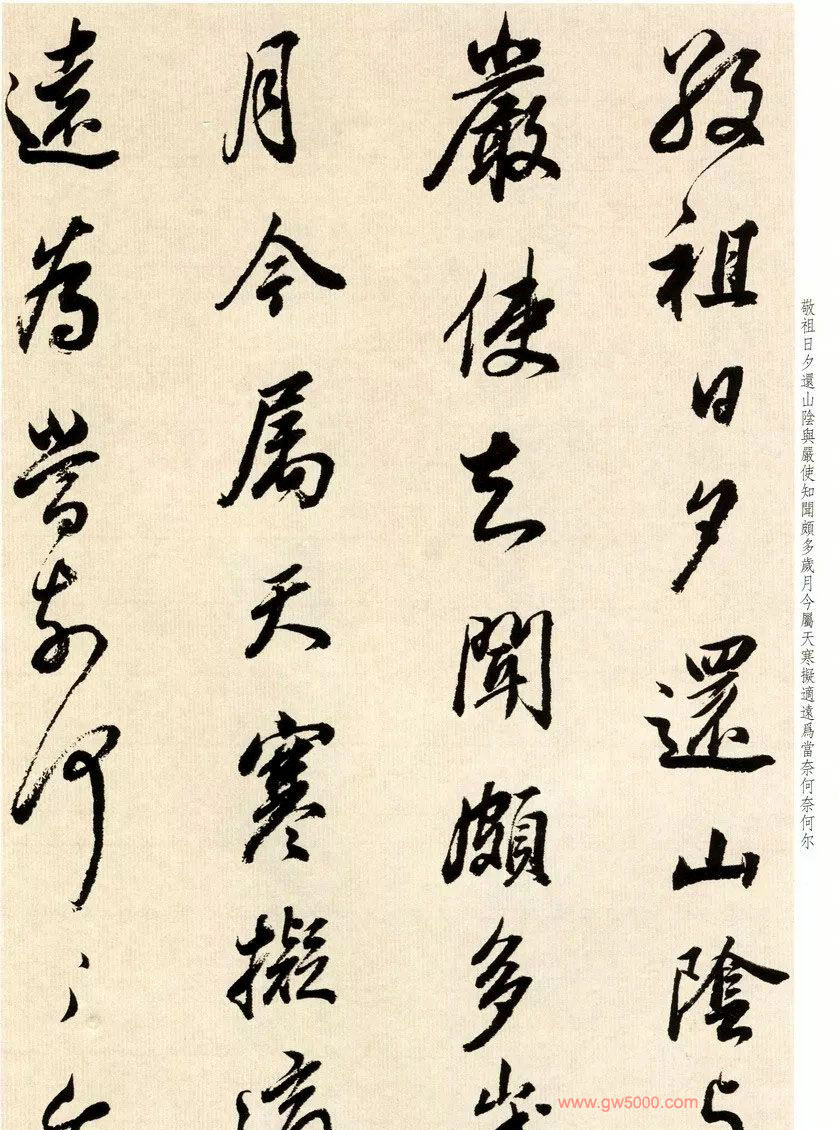 敬祖日夕還山陰與
嚴使知聞頗多歲
月今屬天寒擬適
遠為當奈何〻
敬祖日夕還山陰與嚴使知聞頗多歲月今屬天寒擬適遠爲當奈何奈何尔
www.gw5000.com